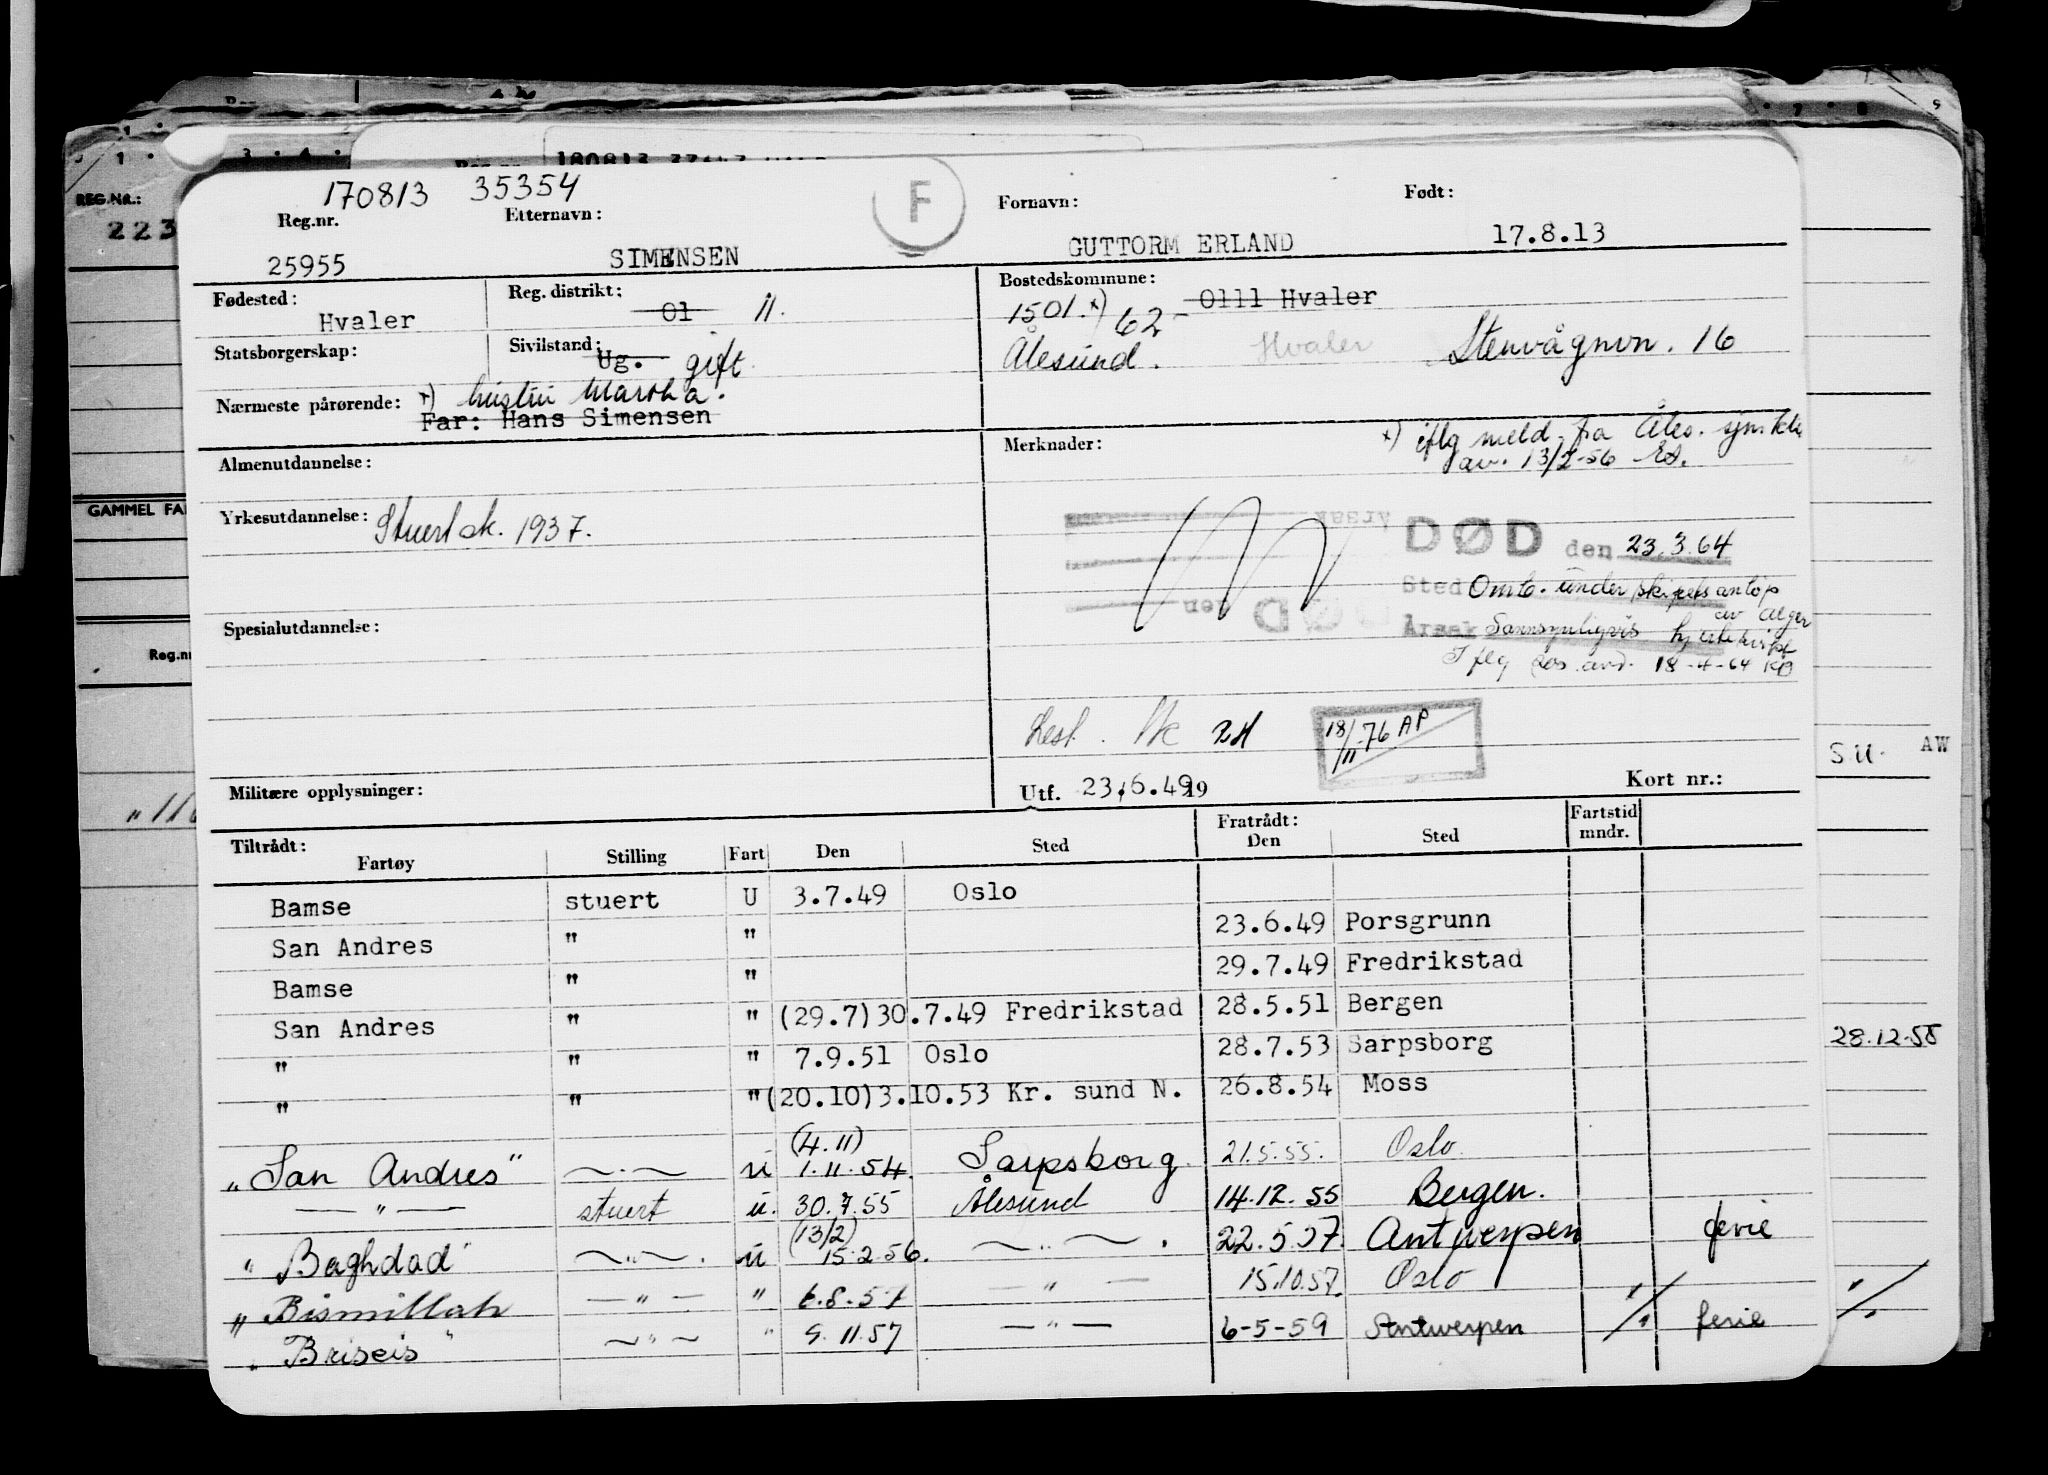 170813 35354
F
Reg.nr. Etternavn: Fornavn: Født:
25955 SIMENSEN GUTTORM ERLAND 17.8.13
Fødested: Reg. distrikt: Bostedskommune:
Hvaler 01 11. 1501. x) 62 - 0111 Hvaler
Statsborgerskap: Sivilstand: Ug. gift Ålesund. Hvaler Stenvågnvn. 16
Nærmeste pårørende: x) hustru Martha.
Far: Hans Simensen
Almenutdannelse: Merknader: x) iflg meld. fra Åles.
av. 13/2-56
Yrkesutdannelse: Stuertsk. 1937.
Årsak
DØD den 23.3.64
Sted Omb. under skipets antøp
av Alger
DØD den
Årsak Sannsynligvis
Spesialutdannelse:
Iflg avd. 18-4-64
18/11-76 AP
Militære opplysninger: Utf. 23.6.49 19 Kort nr.:
Tiltrådt: Fratrådt: Fartstid
Fartøy Stilling Fart Den Sted Den Sted mndr.
Bamse stuert U 3.7.49 Oslo
San Andres " " 23.6.49 Porsgrunn
Bamse " " 29.7.49 Fredrikstad
San Andres " " (29.7)30.7.49 Fredrikstad 28.5.51 Bergen
" " " 7.9.51 Oslo 28.7.53 Sarpsborg
" " " (20.10)3.10.53 Kr. sund N. 26.8.54 Moss
(4.11)
„San Andres" —„— u 1.11.54 Sarpsborg 21.5.55. Oslo
—"— stuert u. 30.7.55 Ålesund 14.12.55 Bergen.
(13/2)
"Baghdad" —"—. u 15.2.56. —"—. 22.5.57 Antwerpen ferie
„Bismillah —"— " 6.8.57 —"— 15.10.57. Oslo
„Briseis" —"— " 9.11.57 —"— 6-5-59 Antwerpen ./. ferie ./.
REG.NR.:
223
GAMMEL FA
Reg.nr
180813
S.U. AW
28.12-58